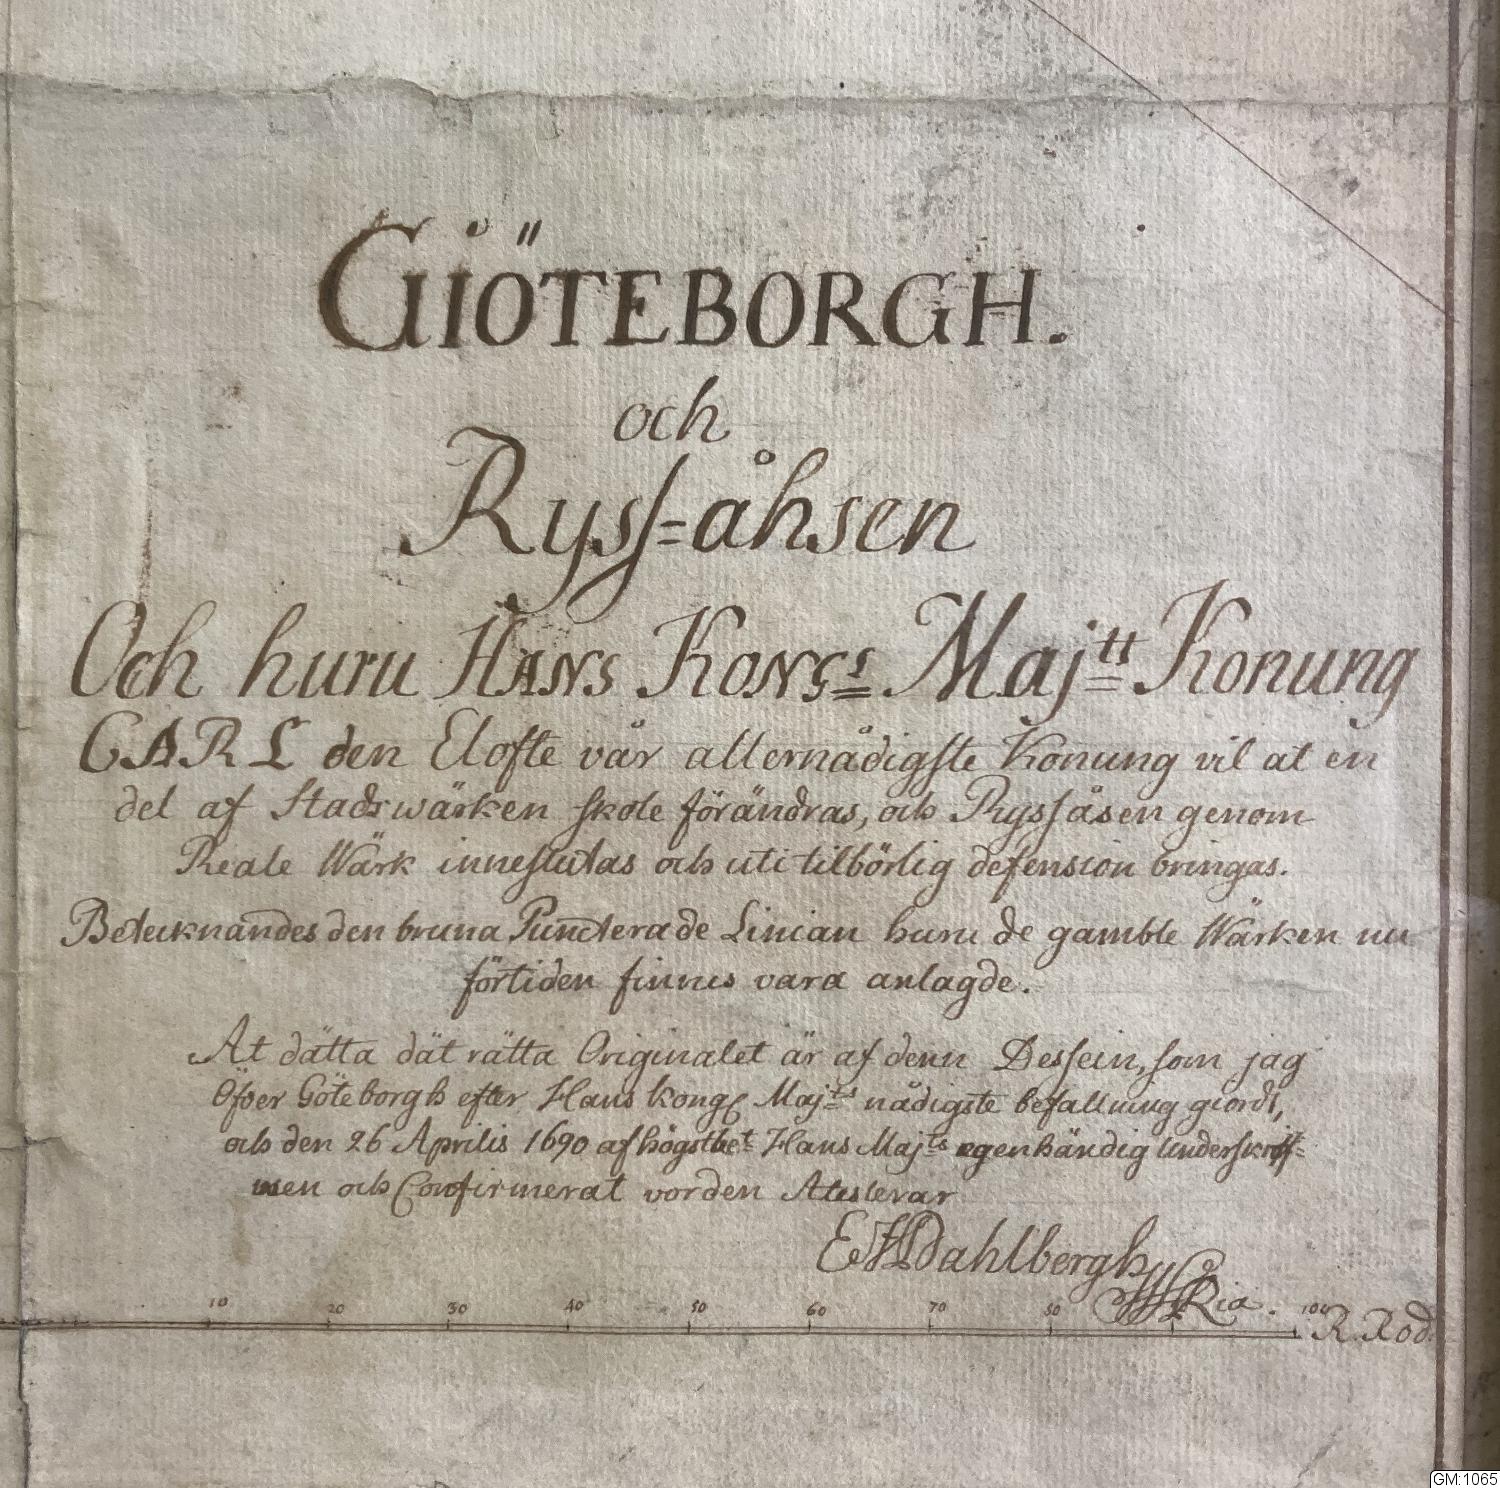 GIÖTEBORGH.
och
Ryss=åhsen
Och huru HANS KONGs Majtts Konung
CARL den Elofte vår allernådigste Konung vil at en
del af Stadswärken skole förändras, och Ryssåsen genom
Reale Wärk inneslutas och uti tilbörlig defension bringas.
Betecknandes den bruna Puncterade Linian huru de gamble Wärken nu
förtiden finnes vara anlagde.
At dätta dät rätta Originalet är af denn Dessein, som jag
Öfver Göteborgh efter Hans Kongl Majts nådigste befallning giordt,
och den 26 Aprilis 1690 af högstbet Hans Majts egenhändig Underskrif=
wen och Confirmerat vorden Atesterar
EHDahlbergh
Ria.
10 20 30 40 50 60 70 80 100 R. Rod.
GM:1065